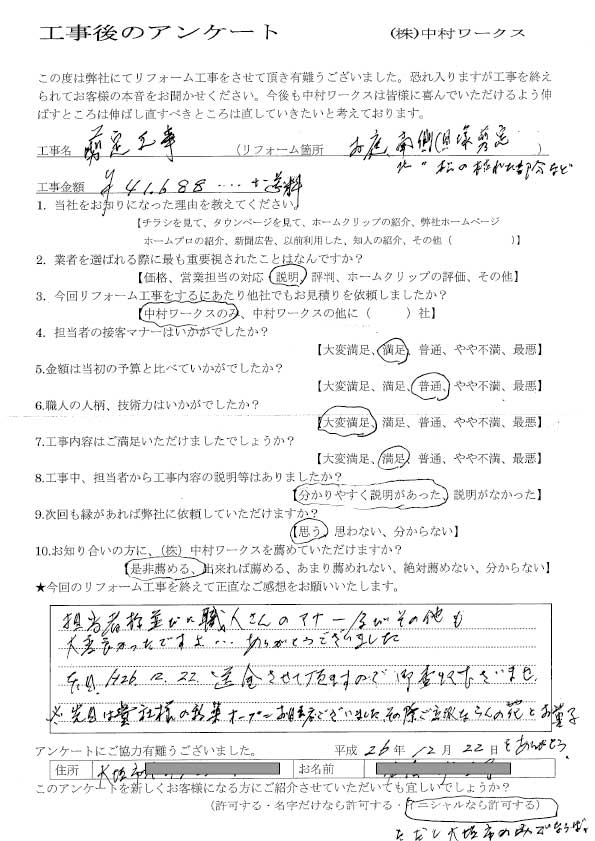 工事後のアンケート (株)中村ワークス
この度は弊社にてリフォーム工事をさせて頂き有難うございました。恐れ入りますが工事を終え
られてお客様の本音をお聞かせください。今後も中村ワークスは皆様に喜んでいただけるよう伸
ばすところは伸ばし直すべきところは直していきたいと考えております。
工事名 剪定工事 (リフォーム箇所 お庭、南側(貝塚剪定 )
〃 松の枯れた部分など
工事金額 ¥41,688
1. 当社をお知りになった理由を教えてください。
【チラシを見て、タウンページを見て、ホームクリップの紹介、弊社ホームページ
ホームプロの紹介、新聞広告、以前利用した、知人の紹介、その他( )】
2. 業者を選ばれる際に最も重要視されたことはなんですか?
【価格、営業担当の対応・説明、評判、ホームクリップの評価、その他】
3. 今回リフォーム工事をするにあたり他社でもお見積りを依頼しましたか?
【中村ワークスのみ、中村ワークスの他に( )社】
4. 担当者の接客マナーはいかがでしたか?
【大変満足、満足、普通、やや不満、最悪】
5.金額は当初の予算と比べていかがでしたか?
【大変満足、満足、普通、やや不満、最悪】
6.職人の人柄、技術力はいかがでしたか?
【大変満足、満足、普通、やや不満、最悪】
7.工事内容はご満足いただけましたでしょうか?
【大変満足、満足、普通、やや不満、最悪】
8.工事中、担当者から工事内容の説明等はありましたか?
【分かりやすく説明があった、説明がなかった】
9.次回も縁があれば弊社に依頼していただけますか?
【思う、思わない、分からない】
10.お知り合いの方に、(株)中村ワークスを薦めていただけますか?
【是非薦める、出来れば薦める、あまり薦めれない、絶対薦めない、分からない】
★今回のリフォーム工事を終えて正直なご感想をお願いいたします。
担当者様並びに職人さんのマナー及びその他も
大変良かったですよ… ありがとうございました
H26.12.22 送金させて頂ますので御査収下さいませ
先日は貴社様の新築オープンお目出度うございました その際ご立派ならんの苑とお菓子
をありがとう
アンケートにご協力有難うございました。 平成 26 年 12 月 22 日
住所 大垣市 お名前
このアンケートを新しくお客様になる方にご紹介させていただいても宜しいでしょうか?
(許可する・名字だけなら許可する・イニシャルなら許可する)
ただし大垣市のみでならば。